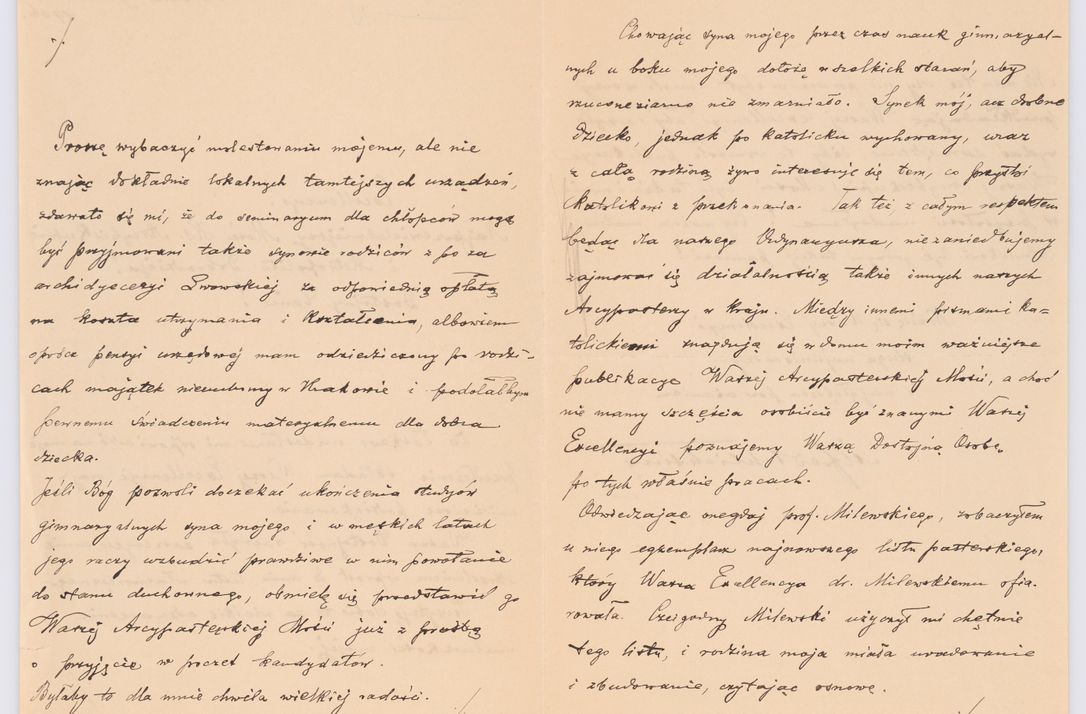 Proszę wybaczyć molestowaniu mojemu, ale nie
znając dokładnie lokalnych tamtejszych urządzeń,
zdawało się mi, że do seminaryum dla chłopców mogą
być przyjmowani także synowie rodziców z po za
archidyecezyi Lwowskiej za odpowiednią opłatą
na koszta utrzymania i kształcenia, albowiem
oprócz pensyi urzędowej mam odziedziczony po rodzi-
cach majątek nieruchomy w Krakowie i podołałbym
pewnemu świadczeniu materyalnemu dla dobra
dziecka.
Jeśli Bóg pozwoli doczekać ukończenia studyów
gimnazyalnych syna mojego i w męskich latach
jego raczy wzbudzić prawdziwe w nim powołanie
do stanu duchownego, ośmielę się przedstawić go
Waszej Arcypasterskiej Mości już z prośbą
o przyjęcie w poczet kandydatów.
Byłaby to dla mnie chwila wielkiej radości.
Chowając syna mojego przez czas nauk gimnazyal-
nych u boku mojego dołożę wszelkich starań, aby
rzucone ziarno nie zmarniało. Synek mój, acz drobne
dziecko, jednak po katolicku wychowany, wraz
z całą rodziną żywo interesuje się tem, co przystoi
katolikowi z przekonania. Tak też z całym respektem
będąc dla naszego Ordynaryusza, nie zaniedbujemy
zajmować się działalnością także innych naszych
Arcypasterzy w kraju. Między innemi pismami ka-
tolickiemi znajdują się w domu moim ważniejsze
publikacye Waszej Arcypasterskiej Mości, a choć
nie mamy szczęścia osobiście być znanymi Waszej
Excellencyi poznajemy Waszą Dostojną Osobę
po tych właśnie pracach.
Odwiedzając onegdaj prof. Milewskiego, zobaczyłem
u niego egzemplarz najnowszego listu pasterskiego,
który Wasza Excellencya dr. Milewskiemu ofia-
rowała. Czcigodny Milewski użyczył mi chętnie
tego listu, i rodzina moja miała uradowanie
i zbudowanie, czytając osnowę.